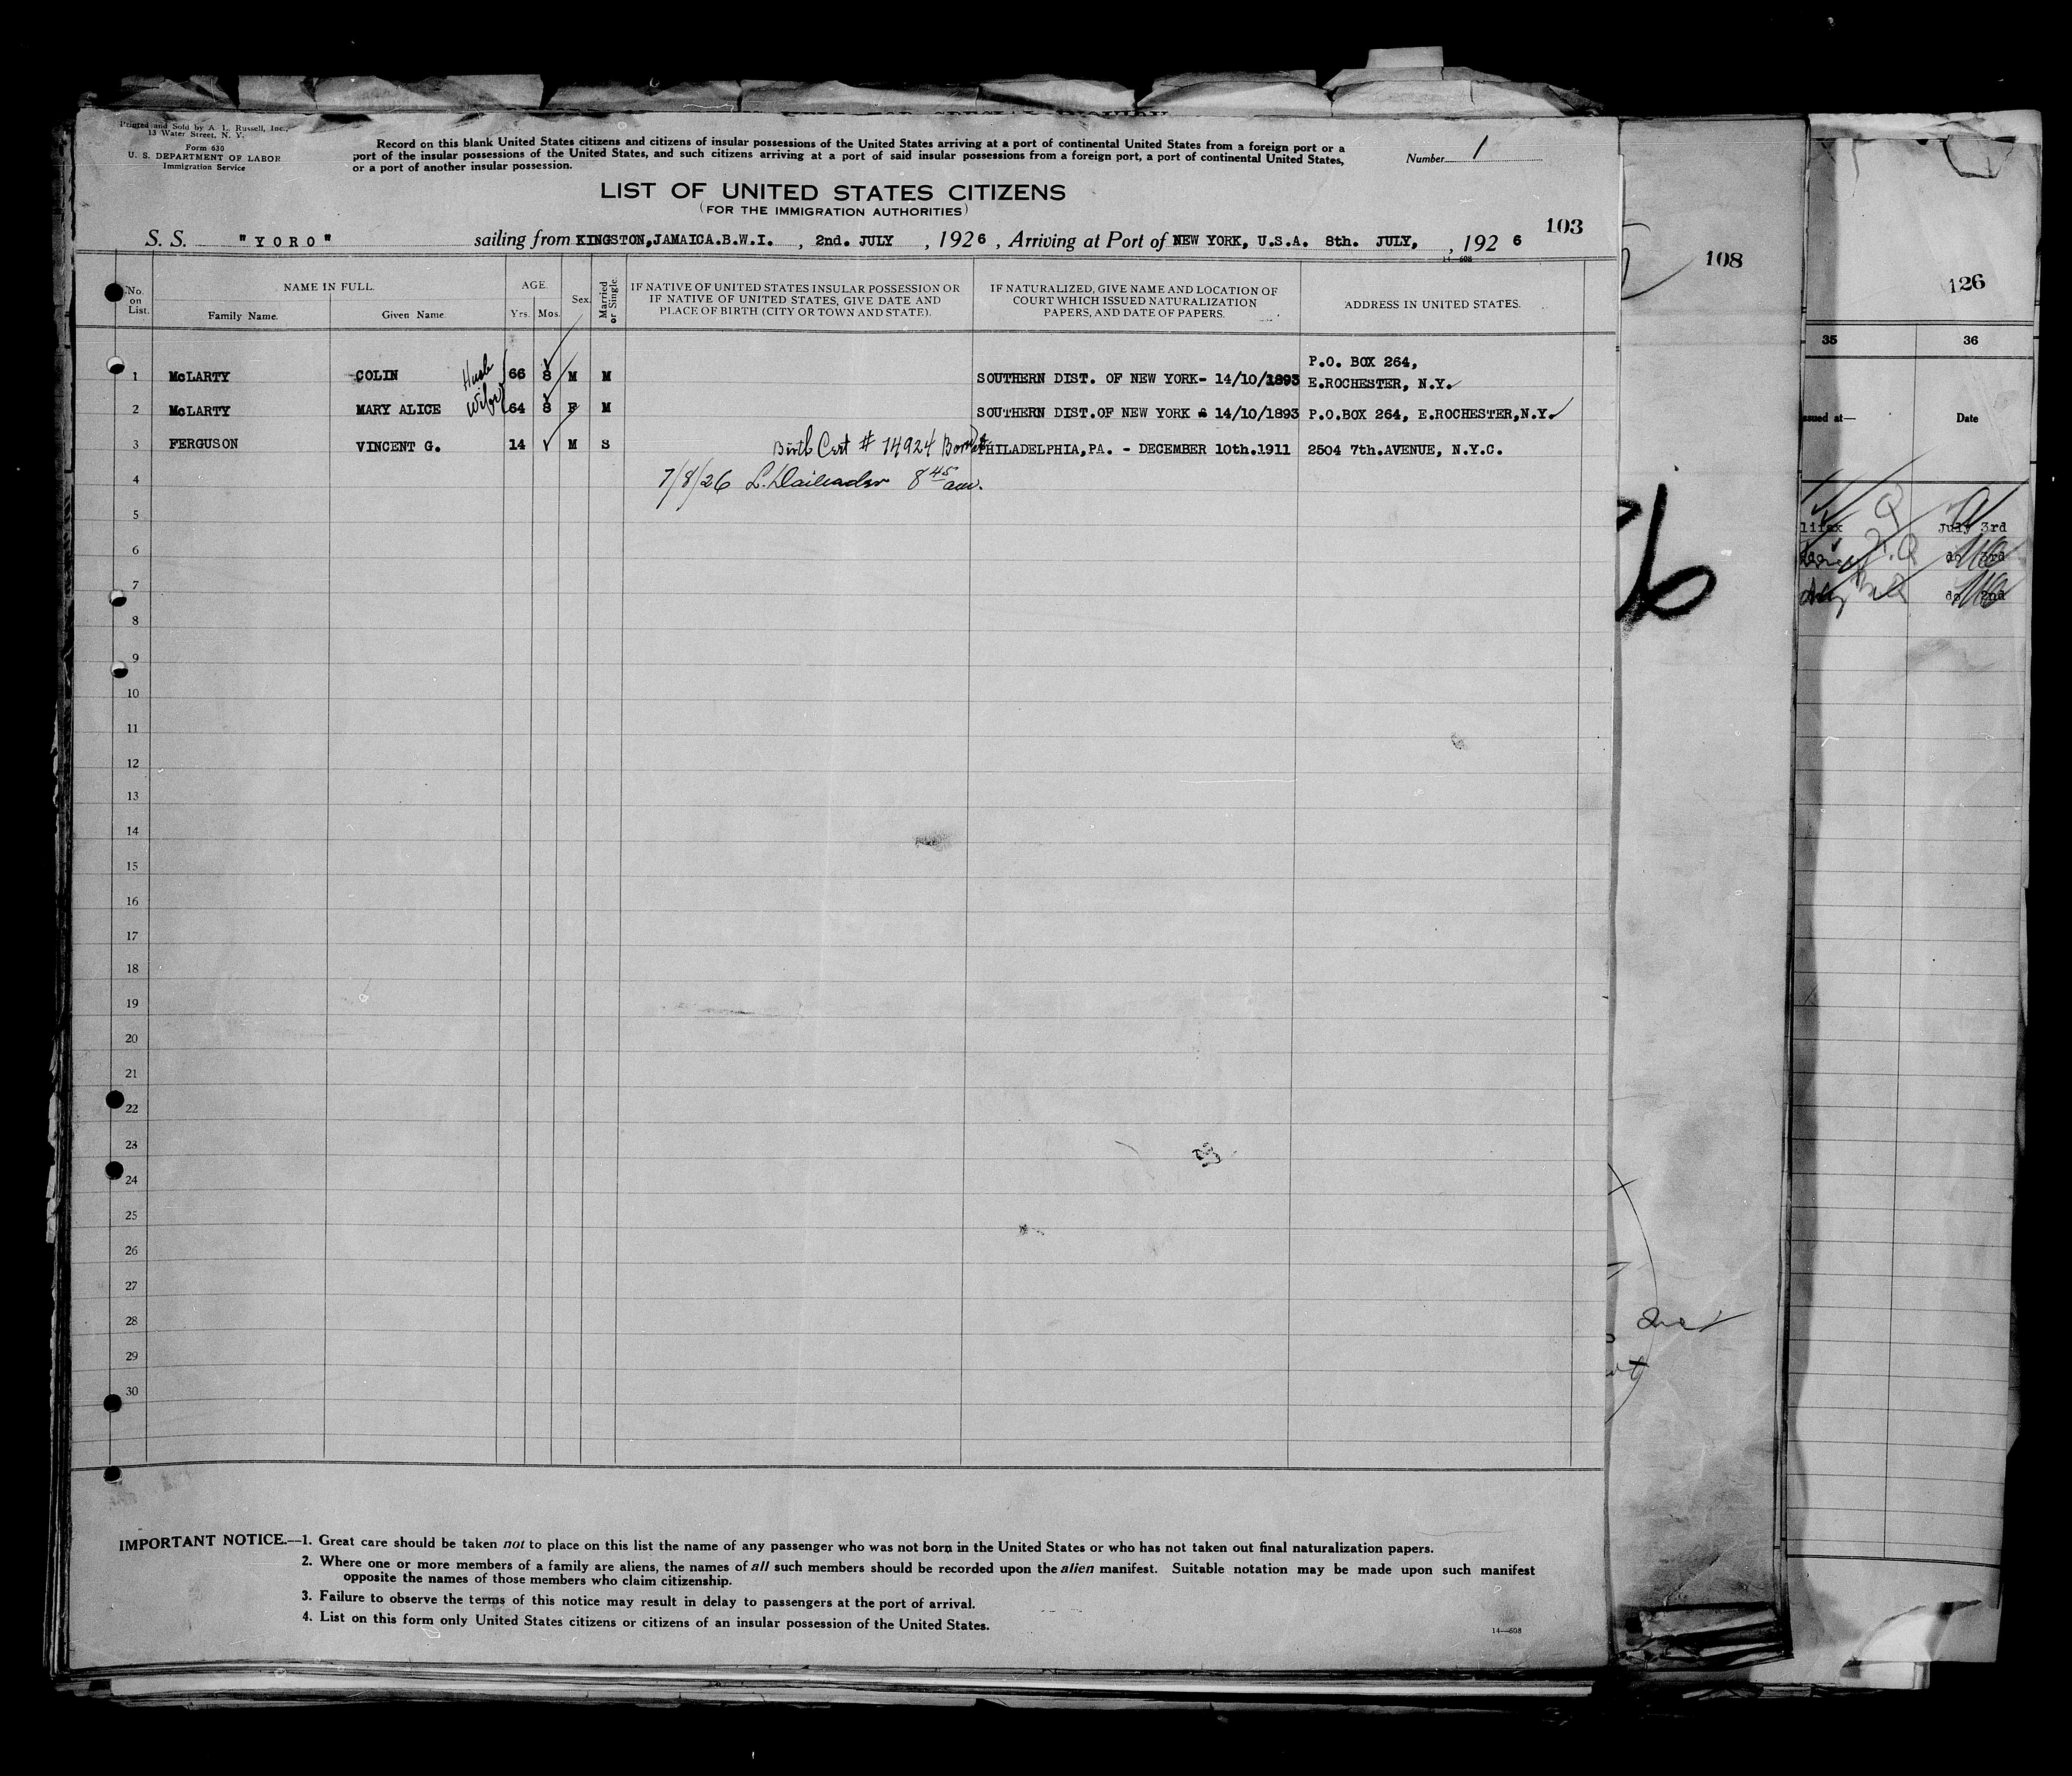 Printed and Sold by A. L. Russell, Inc.,
13 Water Street, N. Y.
Form 630
U. S. DEPARTMENT OF LABOR
Immigration Service
Record on this blank United States citizens and citizens of insular possessions of the United States arriving at a port of continental United States from a foreign port or a
port of the insular possessions of the United States, and such citizens arriving at a port of said insular possessions from a foreign port, a port of continental United States,
or a port of another insular possession.
Number 1
LIST OF UNITED STATES CITIZENS
(FOR THE IMMIGRATION AUTHORITIES)
103
S. S. "YORO" sailing from KINGSTON,JAMAICA.B.W.I. , 2nd. JULY , 1926 , Arriving at Port of NEW YORK, U.S.A. 8th. JULY, , 192 6
14—608
No. on List.
NAME IN FULL.
Family Name. Given Name.
AGE.
Yrs. Mos.
Sex.
Married or Single.
IF NATIVE OF UNITED STATES INSULAR POSSESSION OR
IF NATIVE OF UNITED STATES, GIVE DATE AND
PLACE OF BIRTH (CITY OR TOWN AND STATE).
IF NATURALIZED, GIVE NAME AND LOCATION OF
COURT WHICH ISSUED NATURALIZATION
PAPERS, AND DATE OF PAPERS.
ADDRESS IN UNITED STATES.
P.O. BOX 264,
1 McLARTY COLIN 66 8 M M SOUTHERN DIST. OF NEW YORK- 14/10/1893 E.ROCHESTER, N.Y.
2 McLARTY MARY ALICE 64 8 F M SOUTHERN DIST.OF NEW YORK 14/10/1893 P.O.BOX 264, E.ROCHESTER,N.Y.
3 FERGUSON VINCENT G. 14 M S Birth Cert # 74924 PHILADELPHIA,PA. - DECEMBER 10th.1911 2504 7th.AVENUE, N.Y.C.
4 7/8/26 8 45 am.
5
6
7
8
9
10
11
12
13
14
15
16
17
18
19
20
21
22
23
24
25
26
27
28
29
30
IMPORTANT NOTICE.—1. Great care should be taken not to place on this list the name of any passenger who was not born in the United States or who has not taken out final naturalization papers.
2. Where one or more members of a family are aliens, the names of all such members should be recorded upon the alien manifest. Suitable notation may be made upon such manifest
opposite the names of those members who claim citizenship.
3. Failure to observe the terms of this notice may result in delay to passengers at the port of arrival.
4. List on this form only United States citizens or citizens of an insular possession of the United States.
14—608
108
126
35 36
ssued at— Date
lifax July 3rd
do 3rd
do 2nd